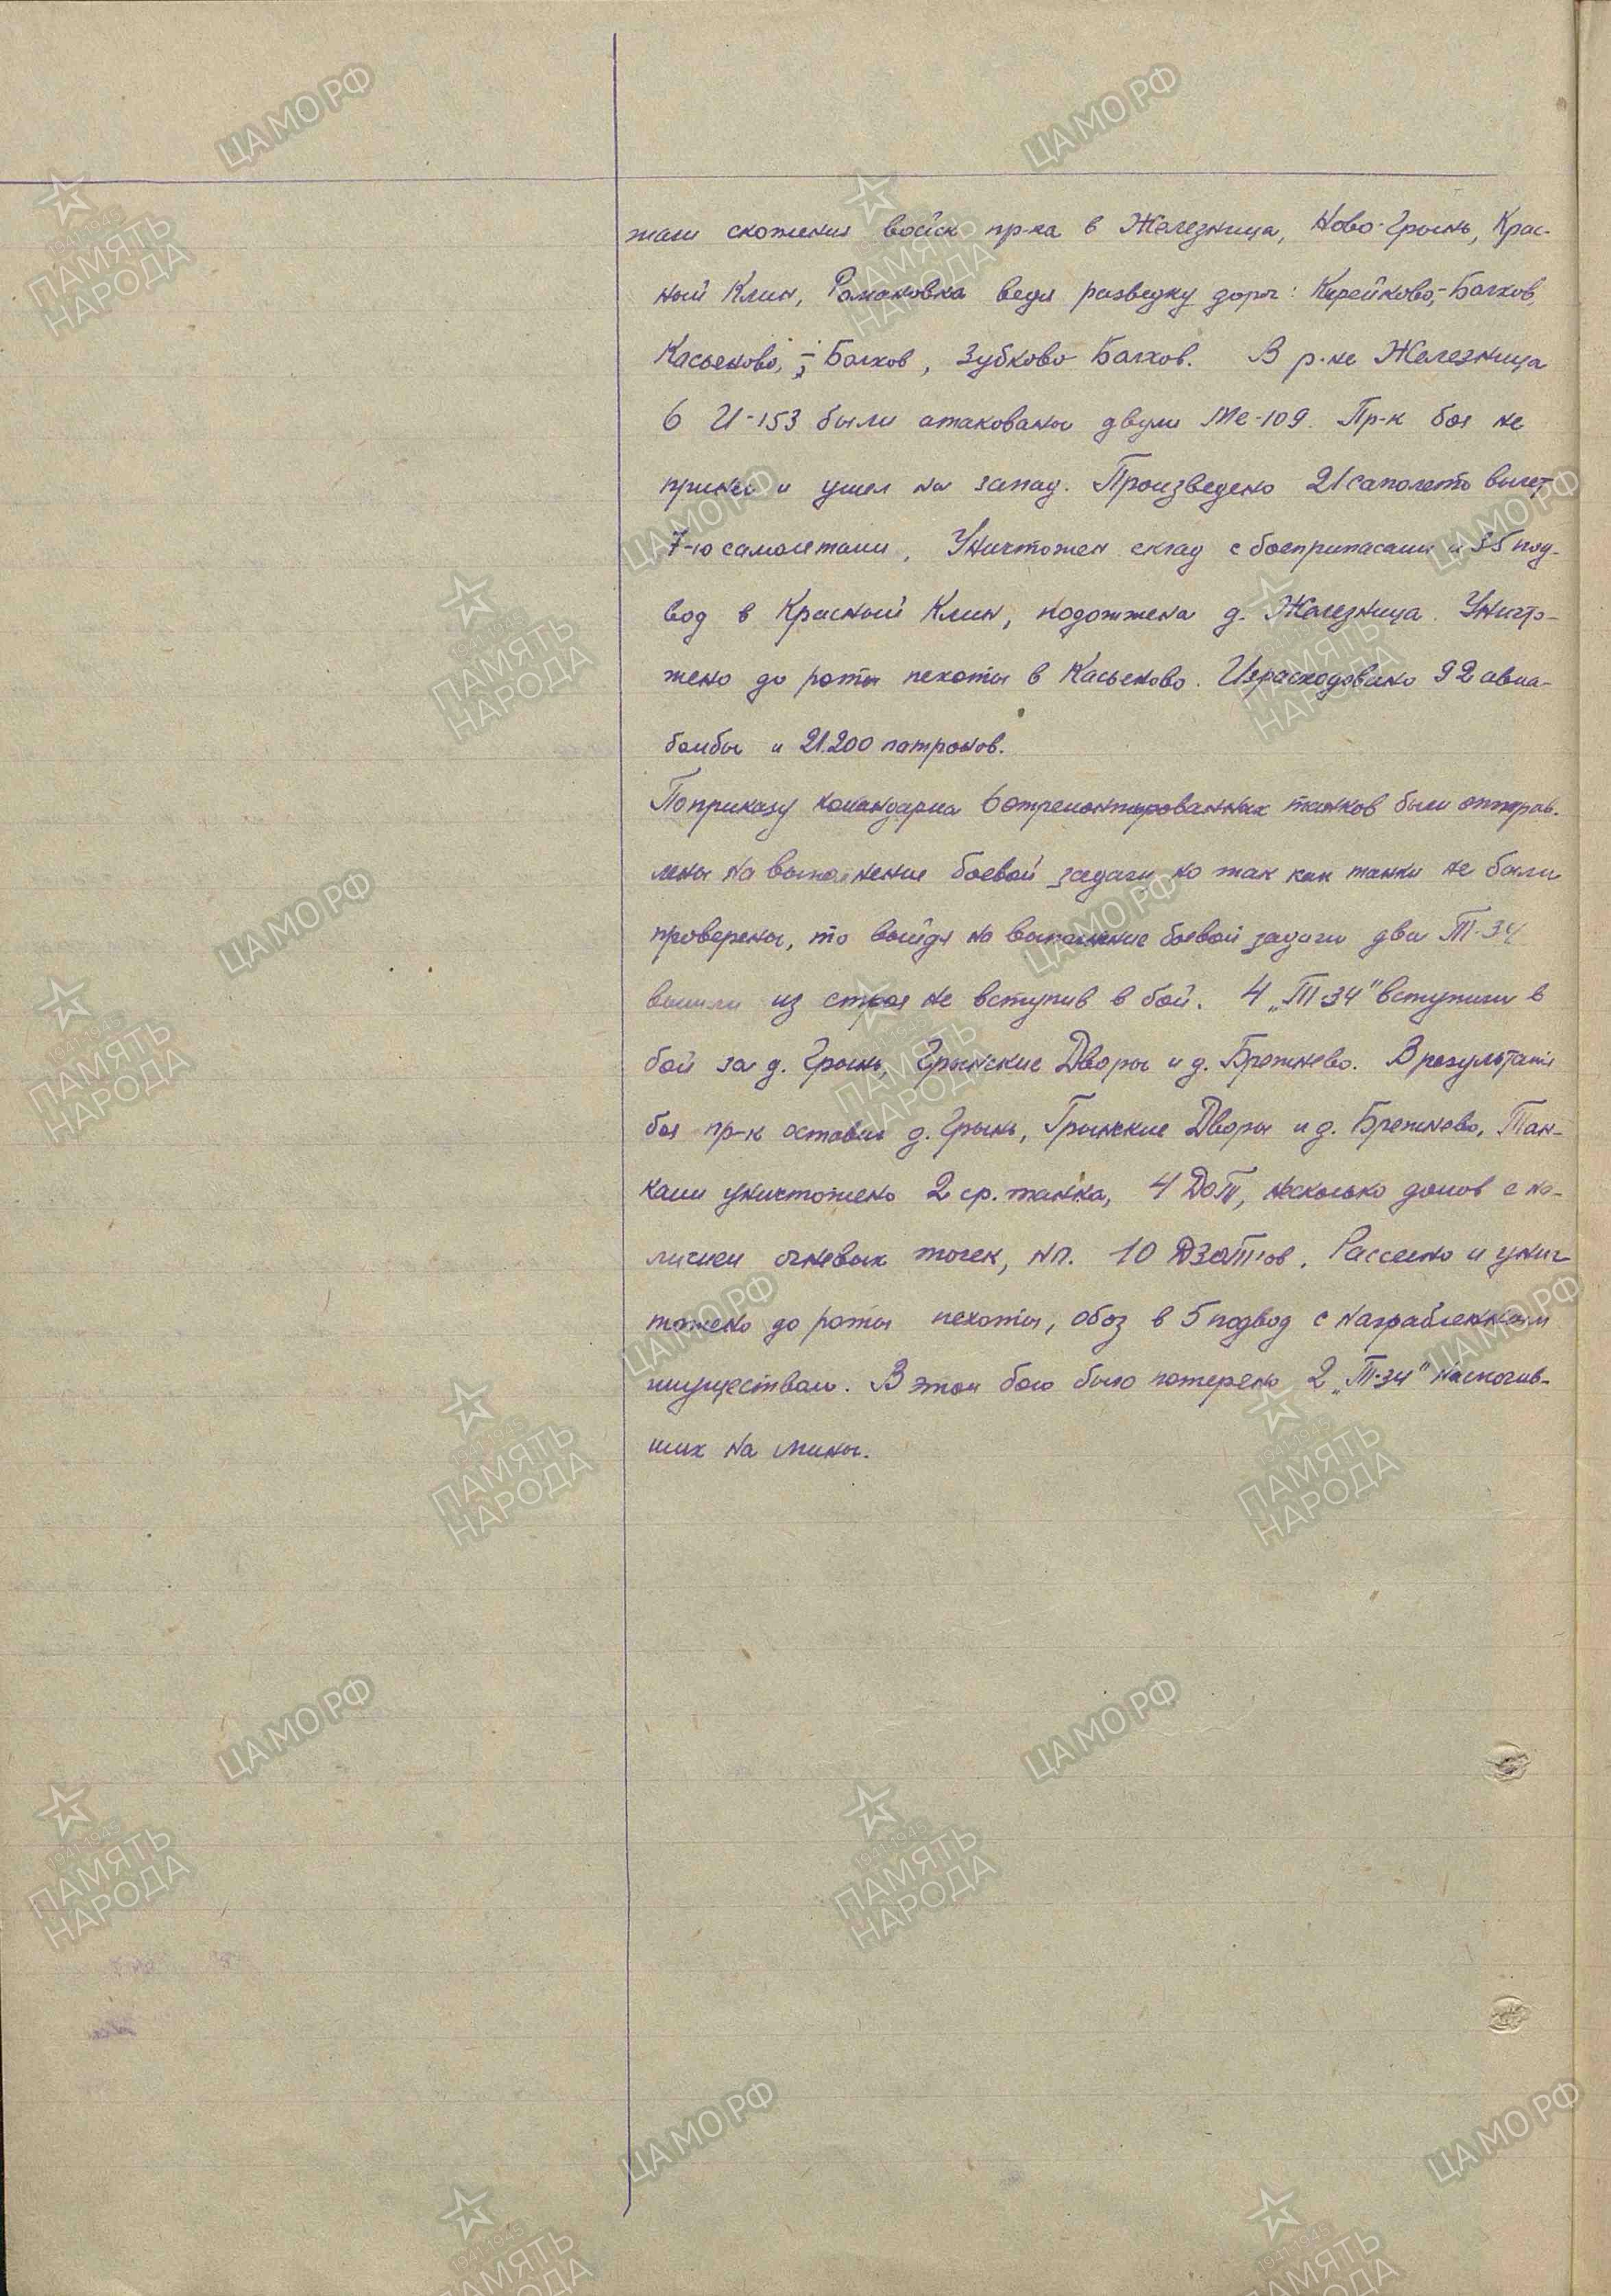 жали скопления войск пр-ка в Железница, Ново-Грынь, Крас-
ный Клин, Романовка ведя разведку дорог: Кирейково,-Болхов,
Касьяново, - Болхов, Зубково Болхов. В р-не Железница
6 И-153 были атакованы двумя Ме-109. Пр-к боя не
принял и ушел на запад. Произведено 21 самолето вылет
7-ю самолетами, Уничтожен склад с боеприпасами и 35 под-
вод в Красный Клин, подожжена д. Железница. Уничто-
жено до роты пехоты в Касьяново. Израсходовано 92 авиа-
бомбы и 21.200 патронов.
По приказу командарма 6 отремонтированных танков были отправ-
лены на выполнение боевой задачи но так как танки не были
проверены, то выйдя на выполнение боевой задачи два Т-34
вышли из строя не вступив в бой. 4 „Т-34" вступили в
бой за д. Грынь, Грынские Дворы и д. Брежнево. В результате
боя пр-к оставил д. Грынь, Грынские Дворы и д. Брежнево, Тан-
ками уничтожено 2 ср. танка, 4 ДОТ, несколько домов с на-
личием огневых точек, НП. 10 ДЗОТов. Рассеяно и унич-
тожено до роты пехоты, обоз в 5 подвод с награбленным
имуществом. В этом бою было потеряно 2 „Т-34" наскочив-
ших на мины.
ЦАМО.РФ
1941-1945
ПАМЯТЬ
НАРОДА